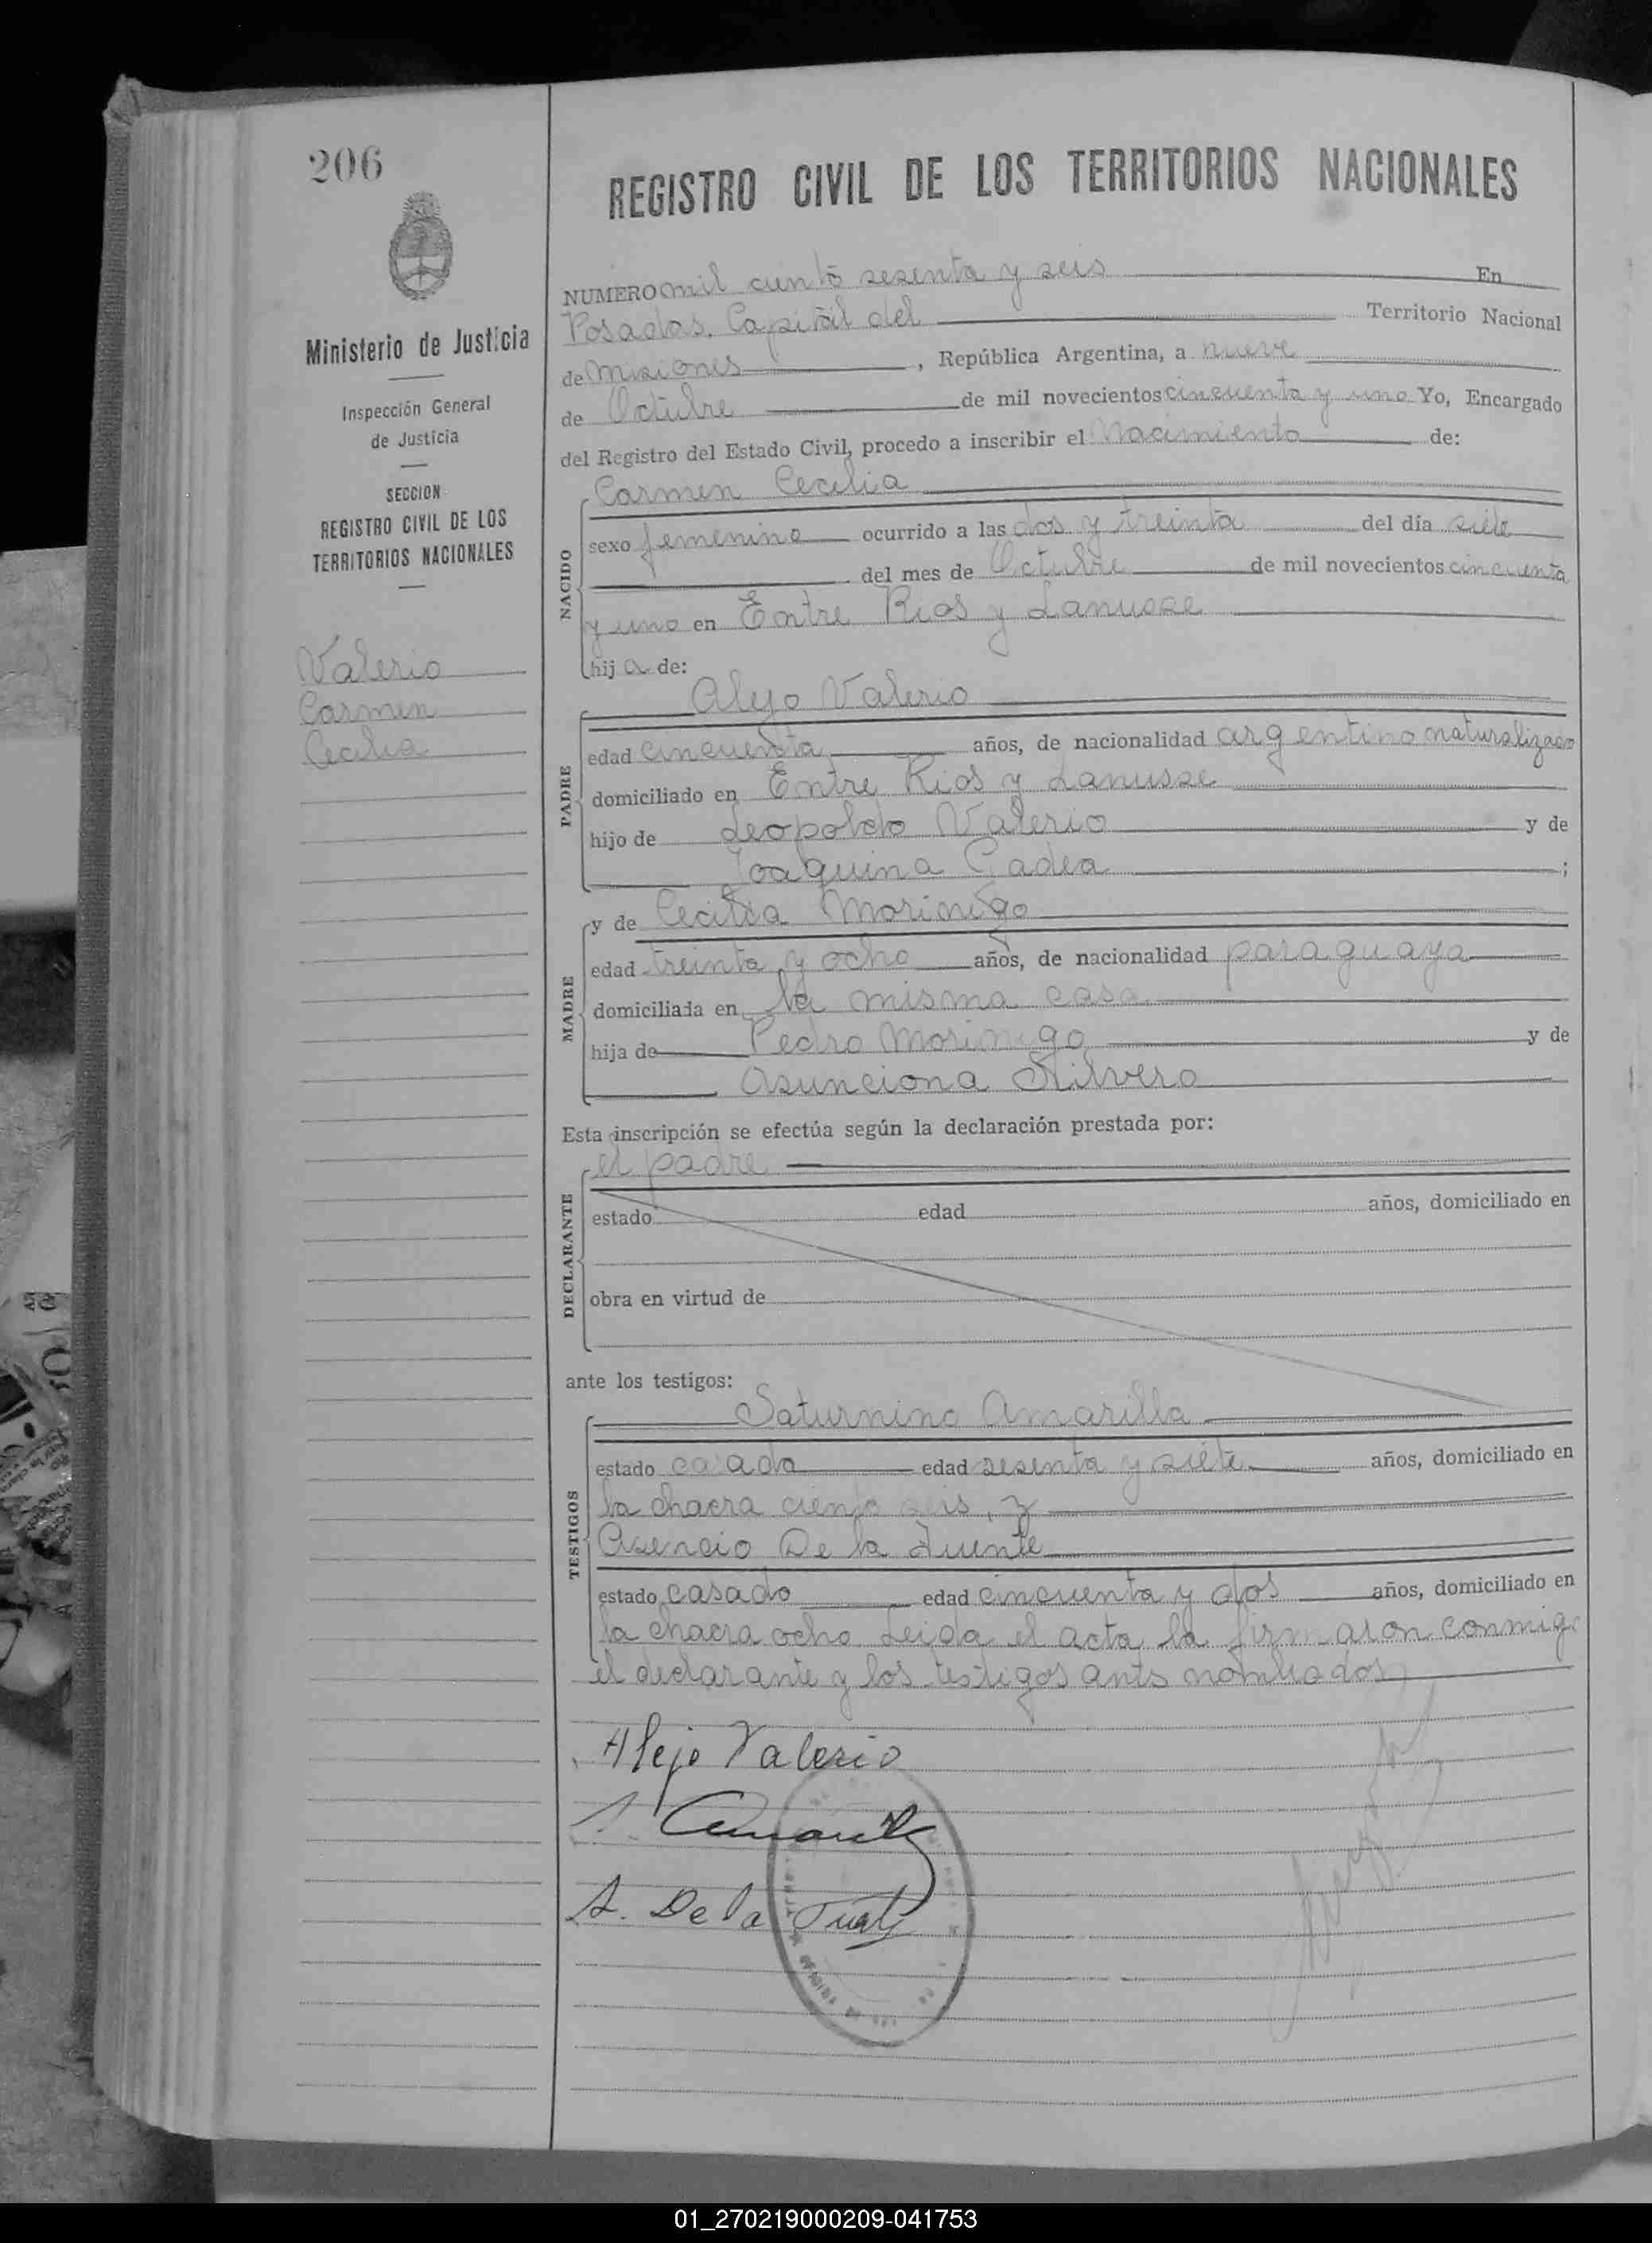 206
REGISTRO CIVIL DE LOS TERRITORIOS NACIONALES
Ministerio de Justicia
Inspección General
de Justicia
SECCION
REGISTRO CIVIL DE LOS
TERRITORIOS NACIONALES
Valerio
Carmen
Cecilia
NUMERO mil ciento sesenta y seis En
Posadas. Capital del Territorio Nacional
de Misiones, República Argentina, a nueve
de Octubre de mil novecientos cincuenta y uno Yo, Encargado
del Registro del Estado Civil, procedo a inscribir el Nacimiento de:
NACIDO
Carmen Cecilia
sexo femenino ocurrido a las dos y treinta del día siete
del mes de Octubre de mil novecientos cincuenta
y uno en Entre Rios y Lanusse
hij a de:
PADRE
Alejo Valerio
edad cincuenta años, de nacionalidad argentino naturalizado
domiciliado en Entre Rios y Lanusse
hijo de Leopoldo Valerio y de
Joaquina Gadea;
MADRE
y de Cecilia Morinigo
edad treinta y ocho años, de nacionalidad paraguaya
domiciliada en la misma casa
hija de Pedro Morinigo y de
Asunciona Silvero
Esta inscripción se efectúa según la declaración prestada por:
DECLARANTE
el padre
estado edad años, domiciliado en
obra en virtud de
ante los testigos:
TESTIGOS
Saturnino Amarilla
estado casado edad sesenta y siete años, domiciliado en
la chacra ciento seis, y
Asencio De la Fuente
estado casado edad cincuenta y dos años, domiciliado en
la chacra ocho Leida el acta la firmaron conmigo
el declarante y los testigos antes nombrados
Alejo Valerio
S. Amarilla
A. De la Fuente
01_270219000209-041753